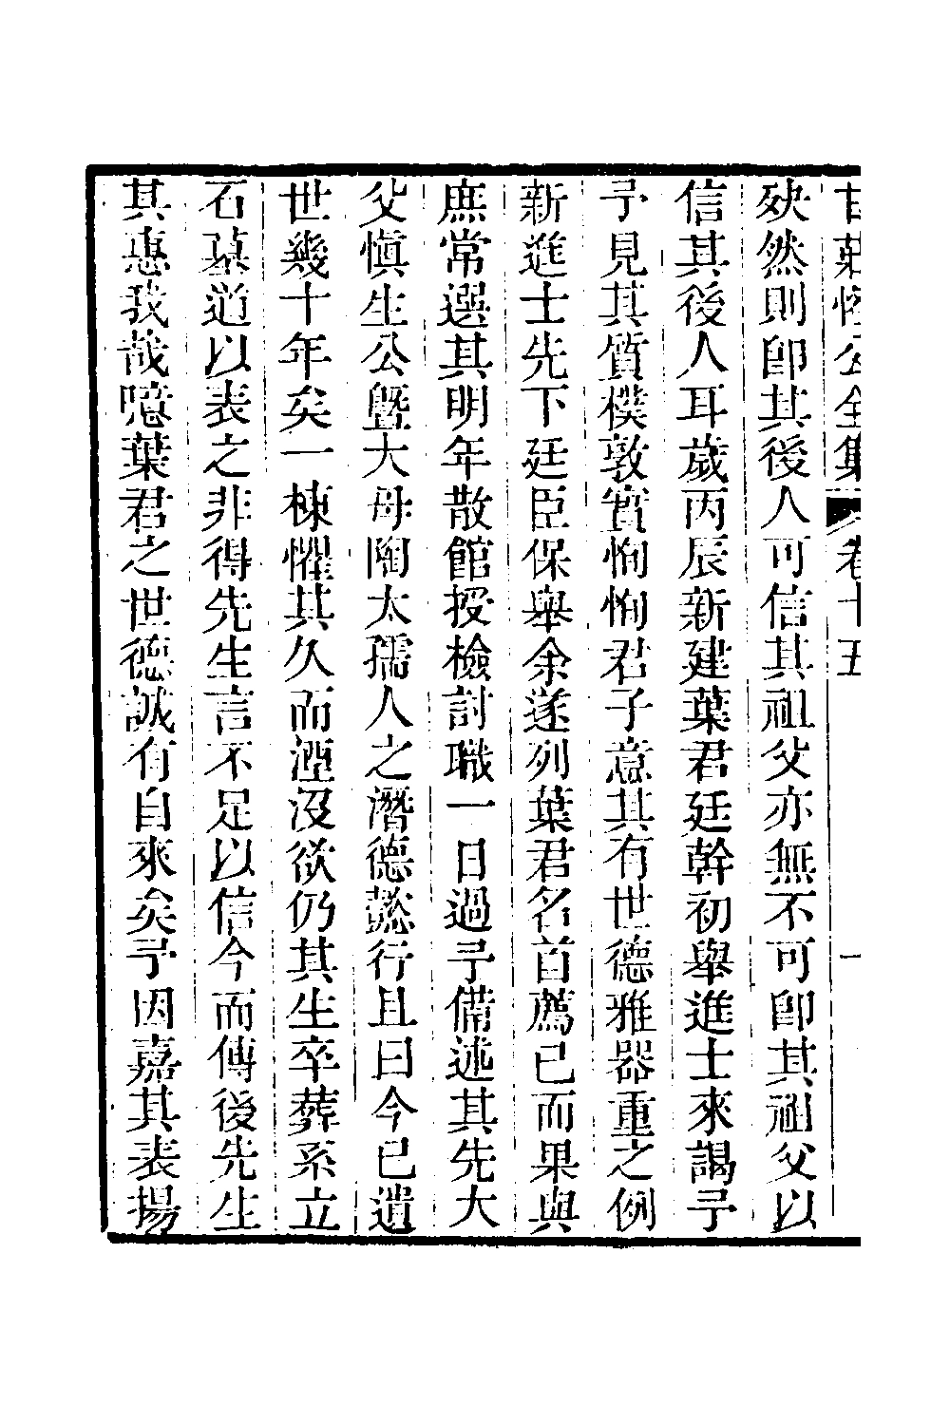 甘莊恪公全集 卷十五 一
殃然則卽其後人可信其祖父亦無不可卽其祖父以
信其後人耳歲丙辰新建葉君廷幹初舉進士來謁予
予見其質樸敦實恂恂君子意其有世德雅器重之例
新進士先下廷臣保舉余遂列葉君名首薦已而果與
庶常選其明年散館授檢討職一日過予備述其先大
父愼生公曁大母陶太孺人之潛德懿行且曰今已遺
世幾十年矣一棟懼其久而湮沒欲仍其生卒葬系立
石墓道以表之非得先生言不足以信今而傳後先生
其惠我哉噫葉君之世德誠有自來矣予因嘉其表揚